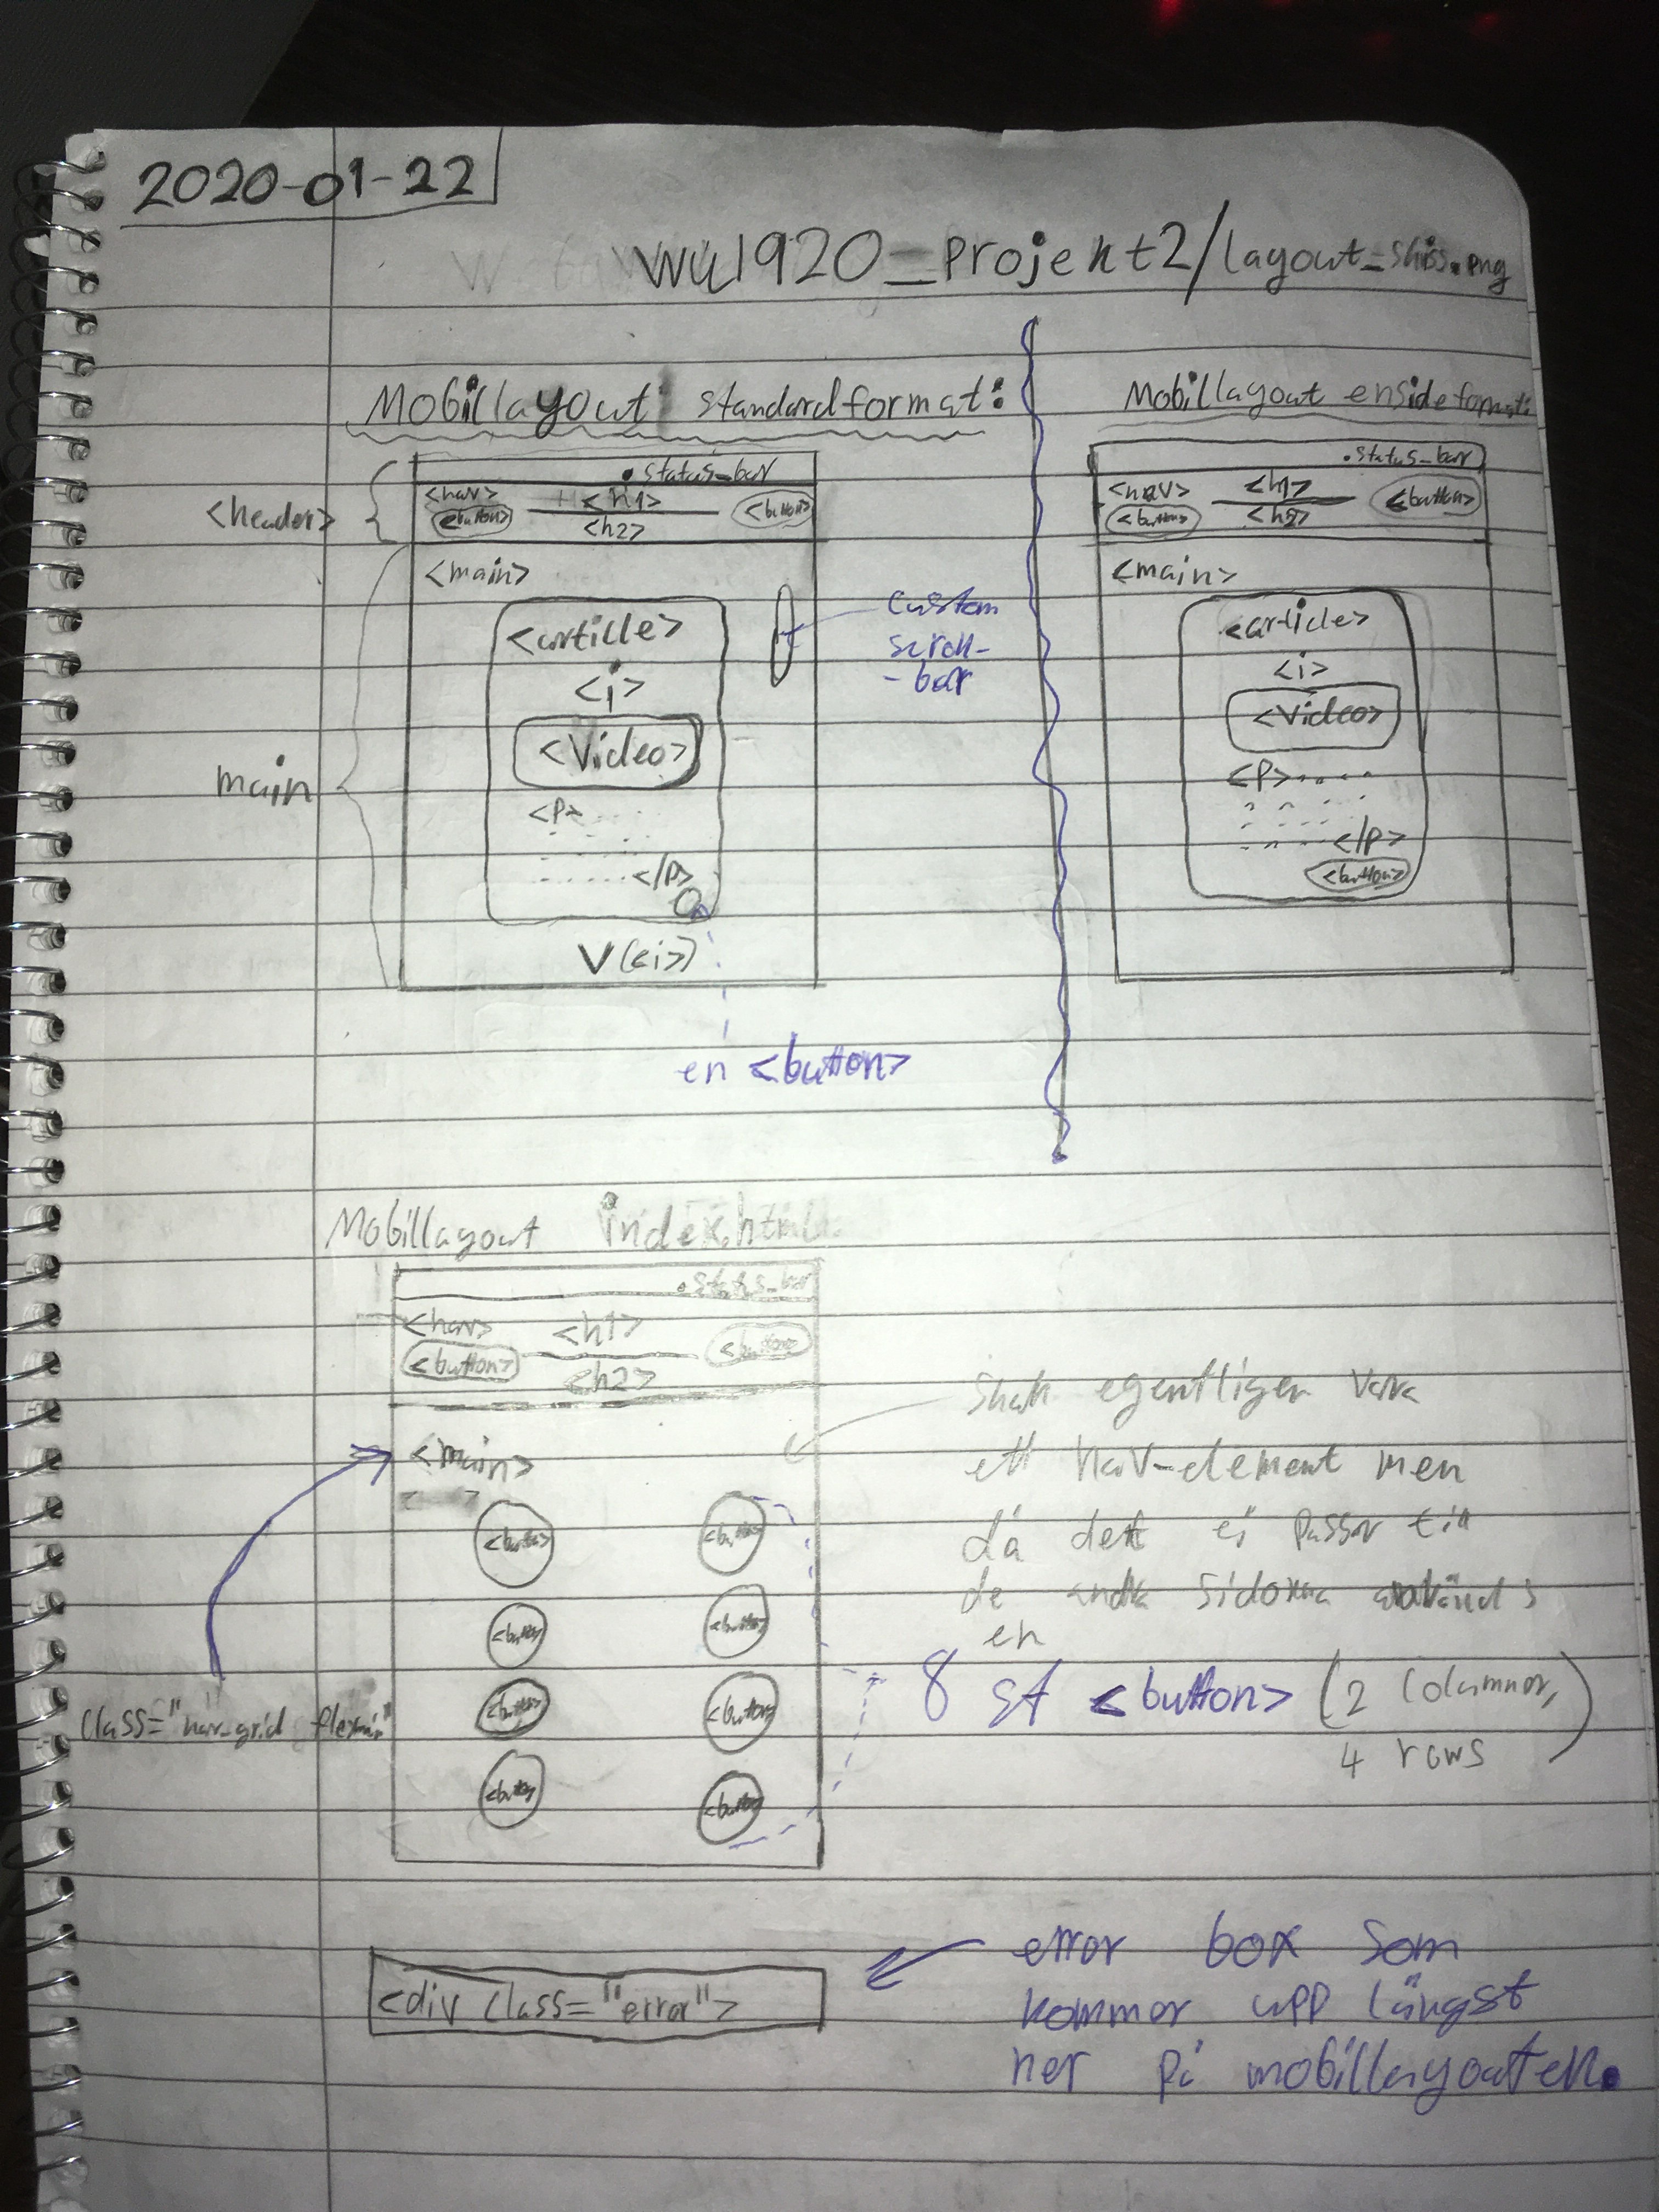 2020-01-22
wu1920_Projekt2/layout_skiss.png
Mobillayout standardformat:
<header>
.status_bar
<nav>
<button>
<h1>
<h2>
<button>
main
<main>
<article>
<i>
<Video>
<P>
</P>
V(<i>)
custom
scroll-
-bar
en <button>
Mobillayout ensideformat:
.status_bar
<nav>
<button>
<h1>
<h2>
<button>
<main>
<article>
<i>
<Video>
<P>
</P>
<button>
Mobillayout index.html
.status_bar
<nav>
<button>
<h1>
<h2>
<button>
<main>
<button> <button>
<button> <button>
<button> <button>
<button> <button>
class="nav_grid
Skall egentligen vara
ett nav-element men
då det ej passar till
de andra sidorna används
en
8 st <button> (2 columner,
4 rows)
<div class="error">
error box som
kommer upp längst
ner på mobillayouten.